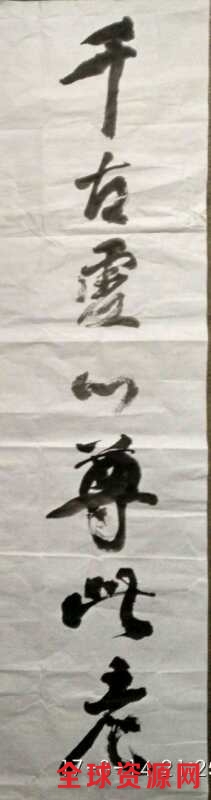 千古灵心尊此老
全球资源网